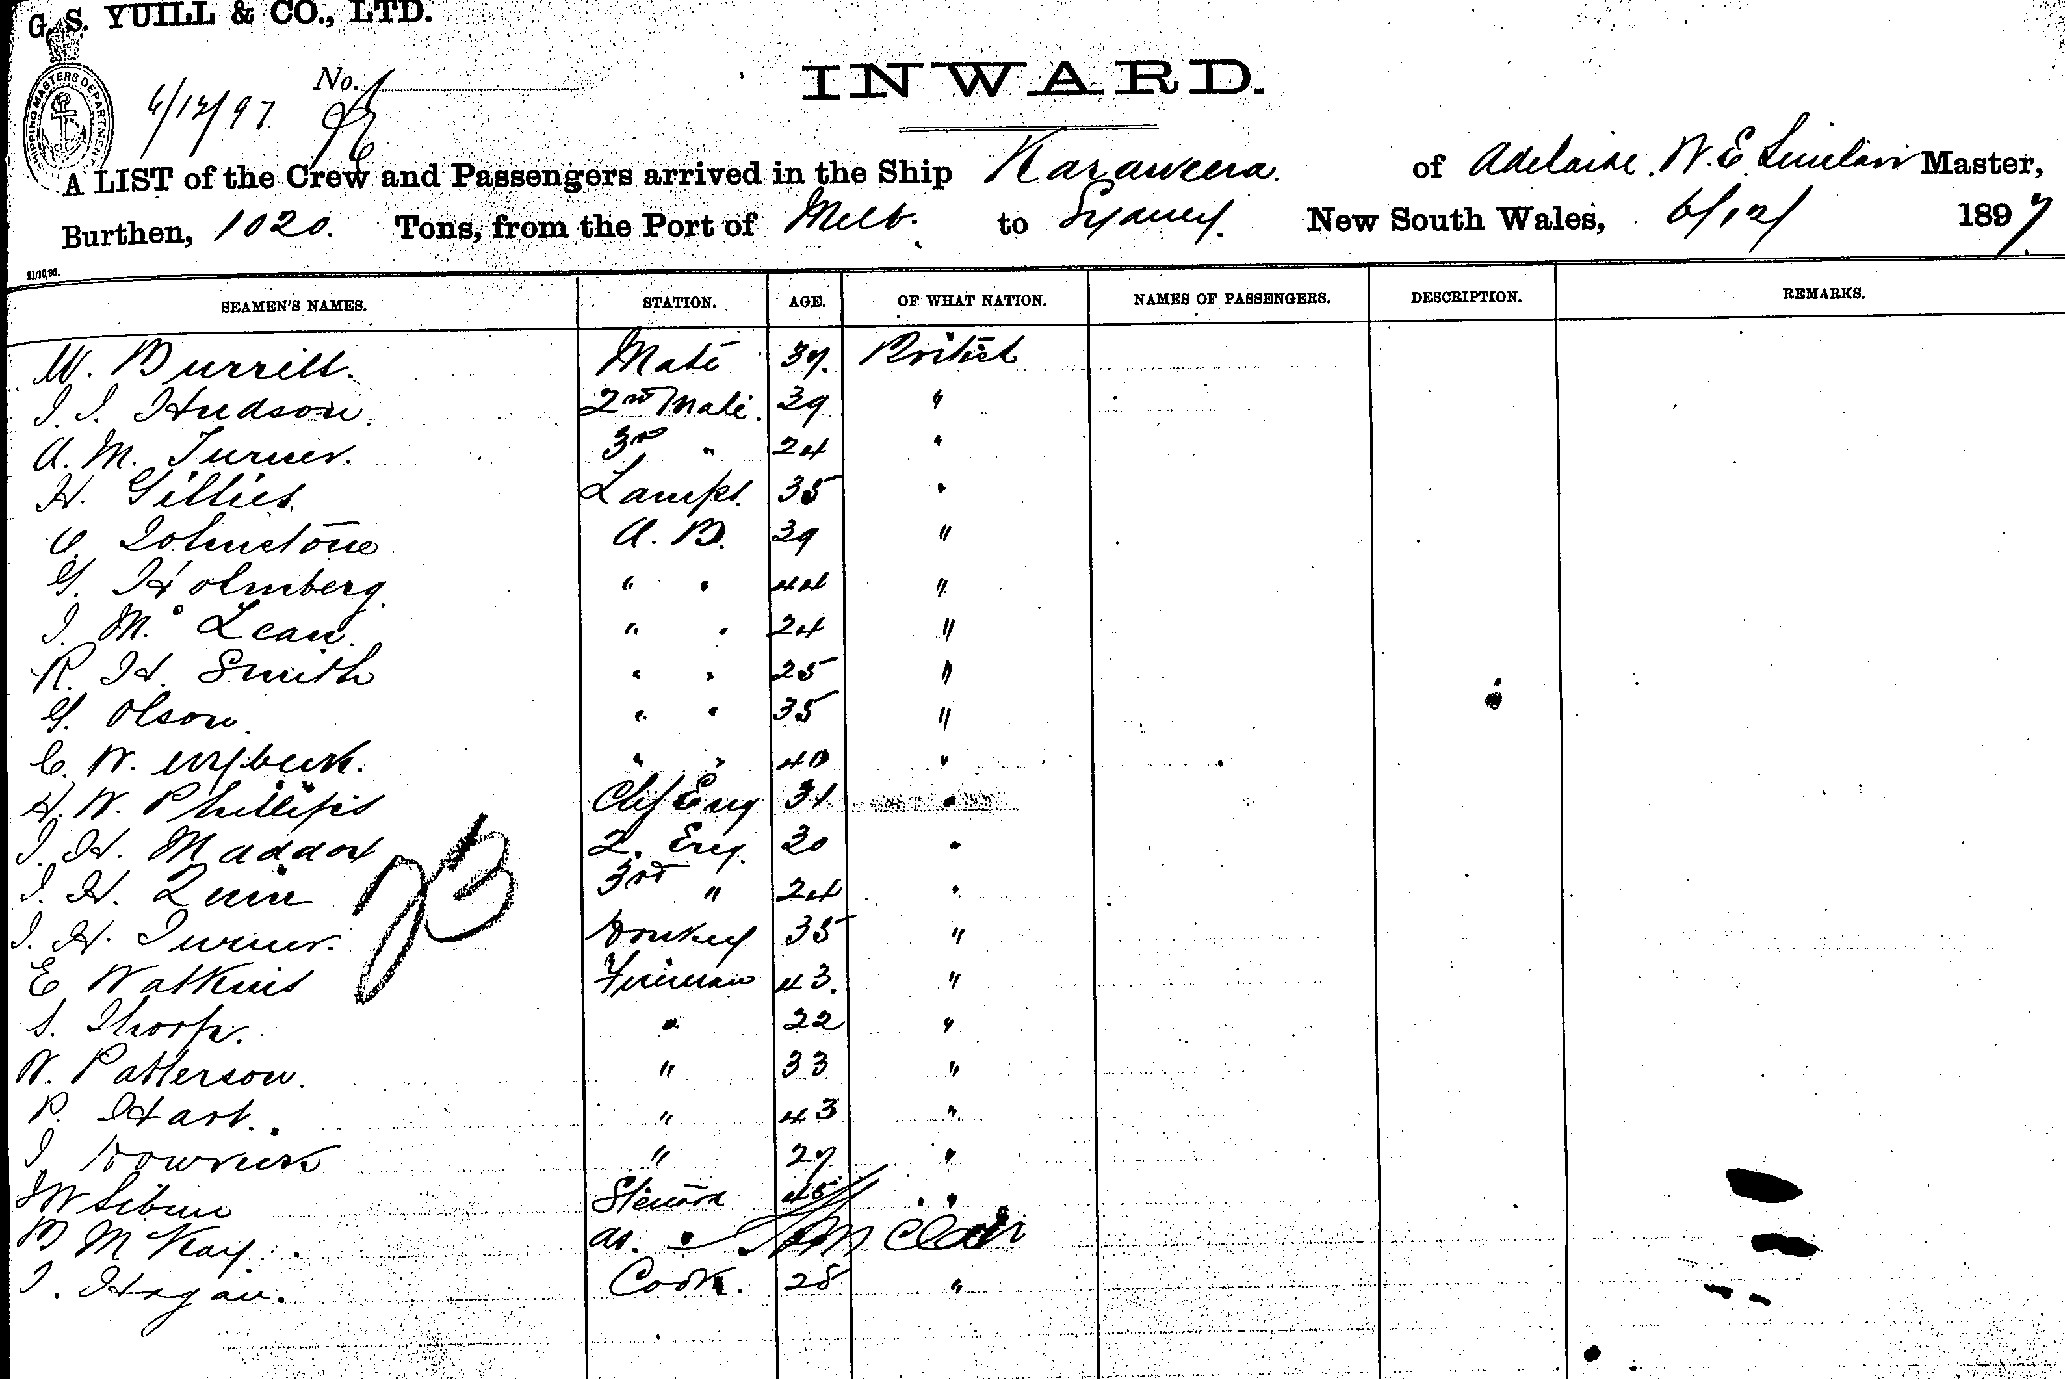 G. S. YUILL & CO., LTD.
INWARD.
SHIPPING MASTERS DEPARTMENT
6/12/97 No.
A LIST of the Crew and Passengers arrived in the Ship Karaweera. of Adelaide. W. E. Sinclair Master,
Burthen, 1020. Tons, from the Port of Melb. to Sydney. New South Wales, 6/12/ 1897.
SEAMEN'S NAMES. STATION. AGE. OF WHAT NATION. NAMES OF PASSENGERS. DESCRIPTION. REMARKS.
W. Burrell. Mate 37. British
J. J. Hudson. 2nd Mate. 39 "
A. M. Turner. 3rd " 24 "
H. Gillies. Lamps. 35 "
C. Johnstone A. B. 39 "
G. Holmberg. " " 44 "
J. Mc Lean. " " 24 "
R. H. Smith " " 25 "
G. Olson. " " 35 "
C. W. " " 40 "
H. W. Phillips Chf Eng 31 "
J. H. Maddox 2. Eng. 30 "
J. H. Quin 3rd " 24 "
J. H. Turner. Donkey 35 "
E Watkins Fireman 43. "
S. Thorp. " 22 "
W. Patterson. " 33 "
P. Hart. " 43 "
J Dowrick " 27 "
J W Steward 45 "
B McKay. as. "
J. Hogan. Cook. 28 "
23